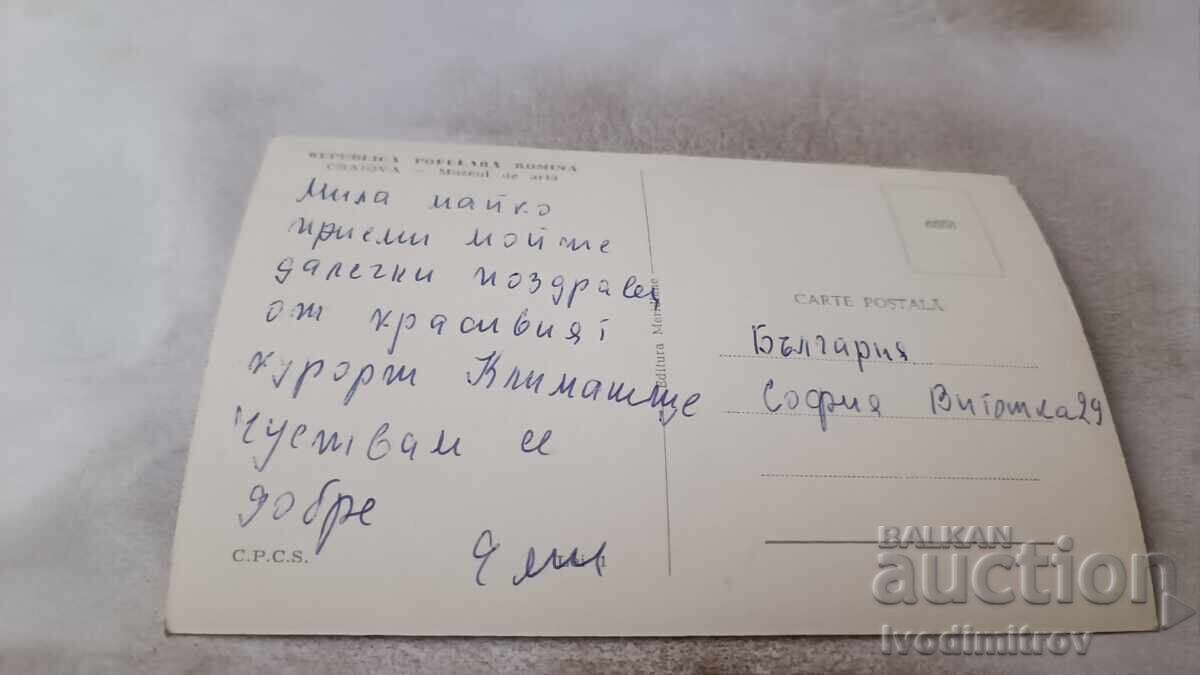 REPUBLICA POPULARA ROMINA
CRAIOVA – Muzeul de artă
Мила майко
приеми мойте
далечни поздрави
от красивият
курорт Климатще
Чуствам се
добре
C.P.C.S.
Editura Meridiane
CARTE POSTALĂ
България
София Витошка 29
BALKAN
auction
Ivodimitrov